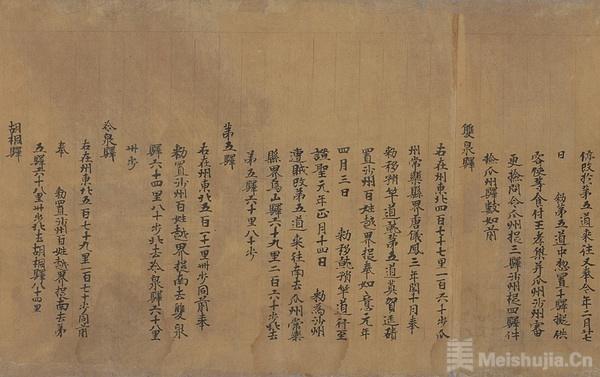 條改於第五道來往又奉今年二月廿七
日 勑第五道中惣置十驛擬供
客使等食付王孝傑并瓜州沙州審
更檢問令瓜州捉三驛沙州捉四驛件
檢瓜州驛數如前
雙泉驛
右在州東北四百七十七里一百六十步瓜
州常樂縣界唐儀鳳三年閏十月奉
勑移稍竿道就第五道莫賀延磧
置沙州百姓越界捉奉如意元年
四月三日 勑移就稍竿道行至
證聖元年正月十四日 勑為沙州
遭賊改第五道來往南去瓜州常樂
縣界烏山驛六十九里二百六十步北去
第五驛六十里八十步
第五驛
右在州東北五百一十一里卌步同前奉
勑置沙州百姓越界捉南去雙泉
驛六十四里八十步北去冷泉驛六十八里
卌步
冷泉驛
右在州東北五百七十九里一百七十步同前
奉 勑置沙州百姓越界捉南去第
五驛六十八里卌步北去胡桐驛八十四里
胡桐驛
美 Meishujia.Cn